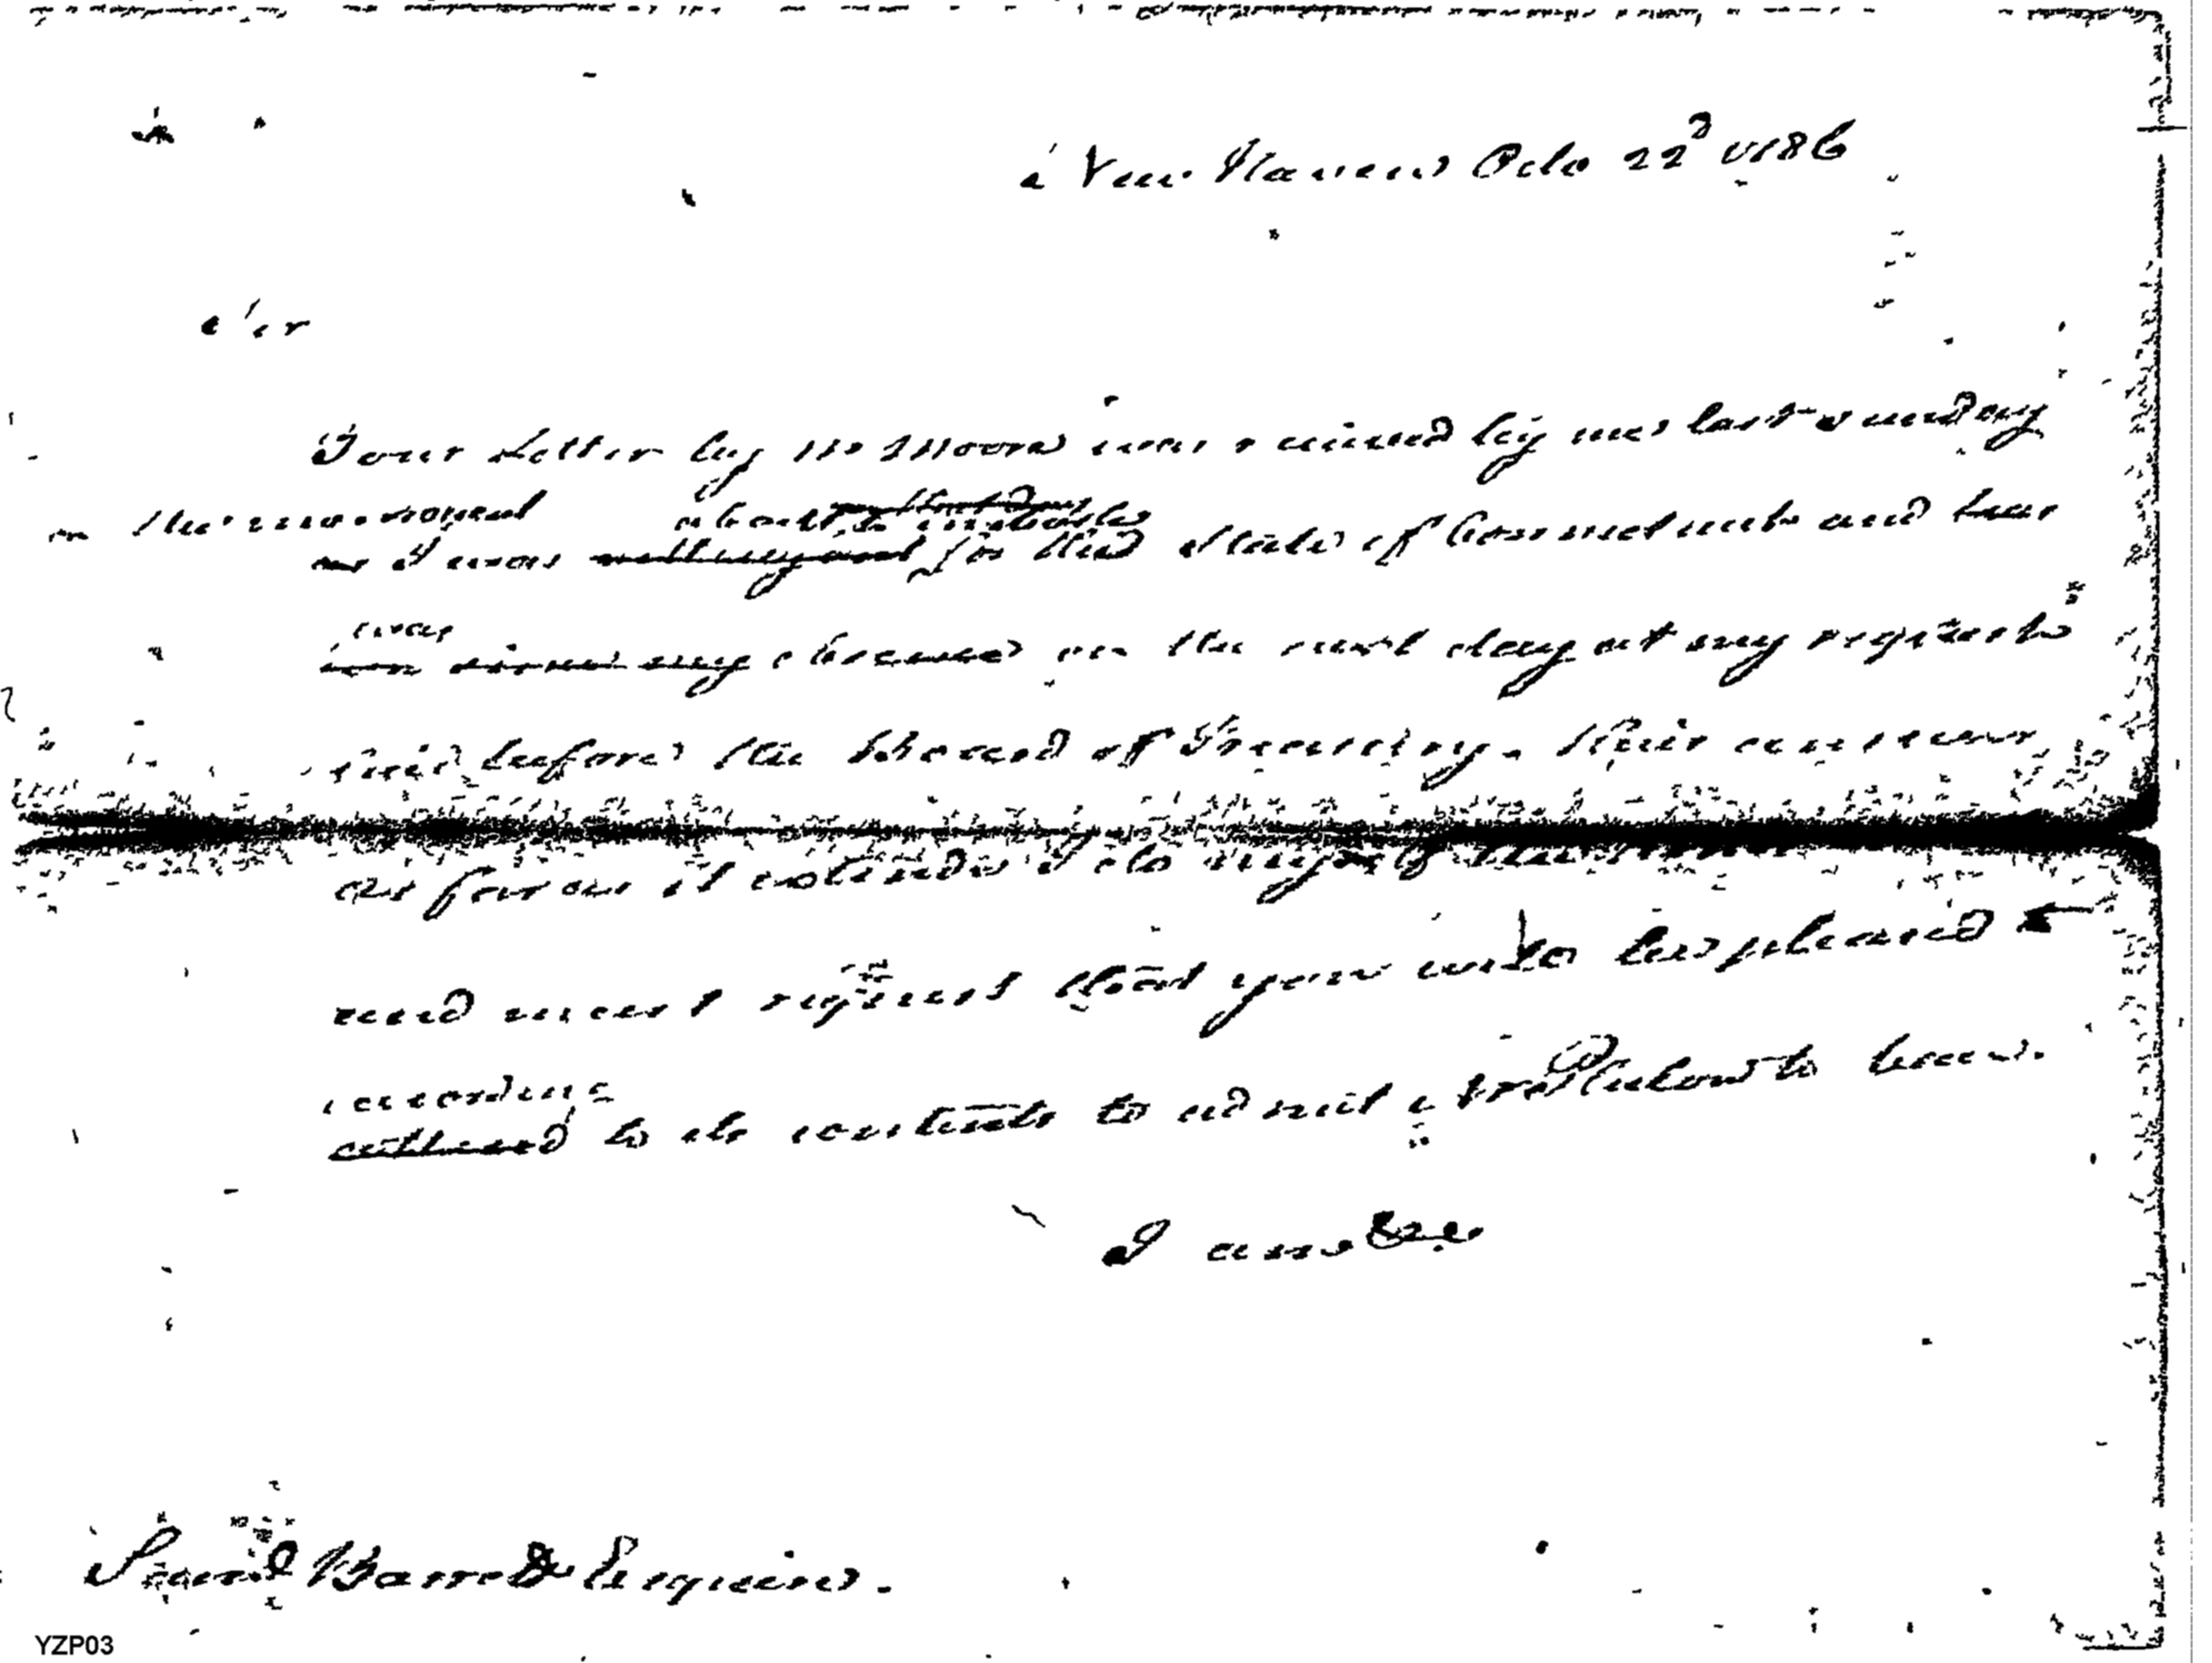 New Haven Octo 22d 1786
Sir
Your Letter by Mr Moore was received by me last Sunday
on the moment about to embark
as I was for the State of Connecticut and has
was
my absence on the next day at my request
laid before the Board of Treasury. Their answer
as far as it extends I do myself the
and must request that you will be pleased
according
to its contents to admit to
I am &c
Samuel Barrett Esquire.
YZP03